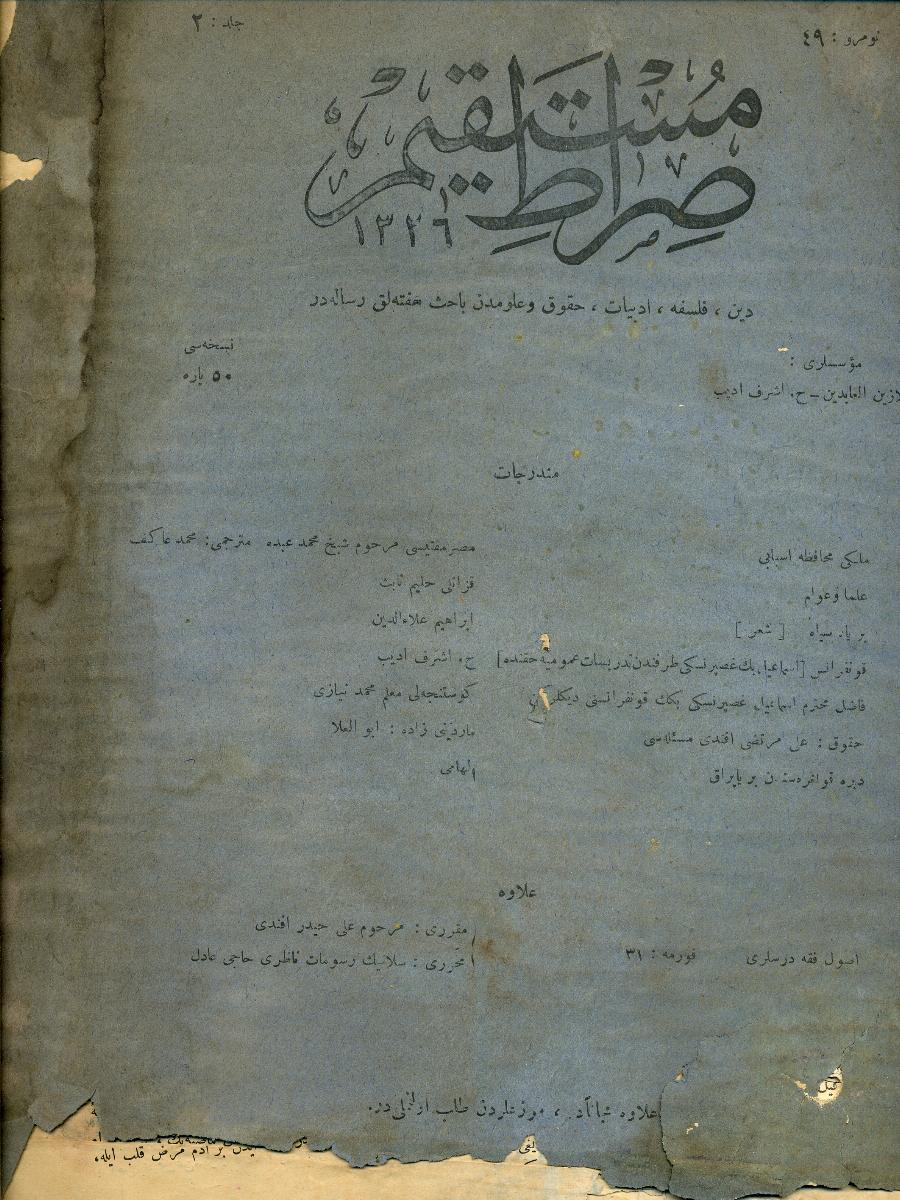 نومرو : ٤٩
جلد : ٢
صِراطِ مُسْتَقيم
١٣٢٦
دین ، فلسفه ، ادبیات ، حقوق وعلومدن باحث هفته‌لق رساله‌در
مؤسسلری :
نسخه‌سی
زین العابدین – ح. اشرف ادیب
٥٠ پاره
مندرجات
ملکی محافظه اسبابی
مصر مفتیسی مرحوم شیخ محمد عبده مترجمی : محمد عاکف
علما وعوام
قزانلی حلیم ثابت
سیاه [ شعر ]
ابراهیم علاءالدین
قونفرانس [اسماعیل بك غصپرنسکی طرفندن تدریسات عمومیه حقنده]
ح. اشرف ادیب
فاضل محترم اسماعیل غصپرنسکی بکك قونفرانسنی دیکلر
کوستنجه‌لی معلم محمد نیازی
حقوق : علی مرتضی افندی مسئله‌سی
ماردینی زاده : ابو العلا
دبره قونفره‌سندن بر یاپراق
الهامی
علاوه
اصول فقه درسلری فورمه : ٣١
مقرری : مرحوم علی حیدر افندی
محرری : سلانیك رسومات ناظری حاجی عادل
علاوه مجاناً در ، موزعلردن طلب اولنملی در.
بر آدم مرض قلب ایله،